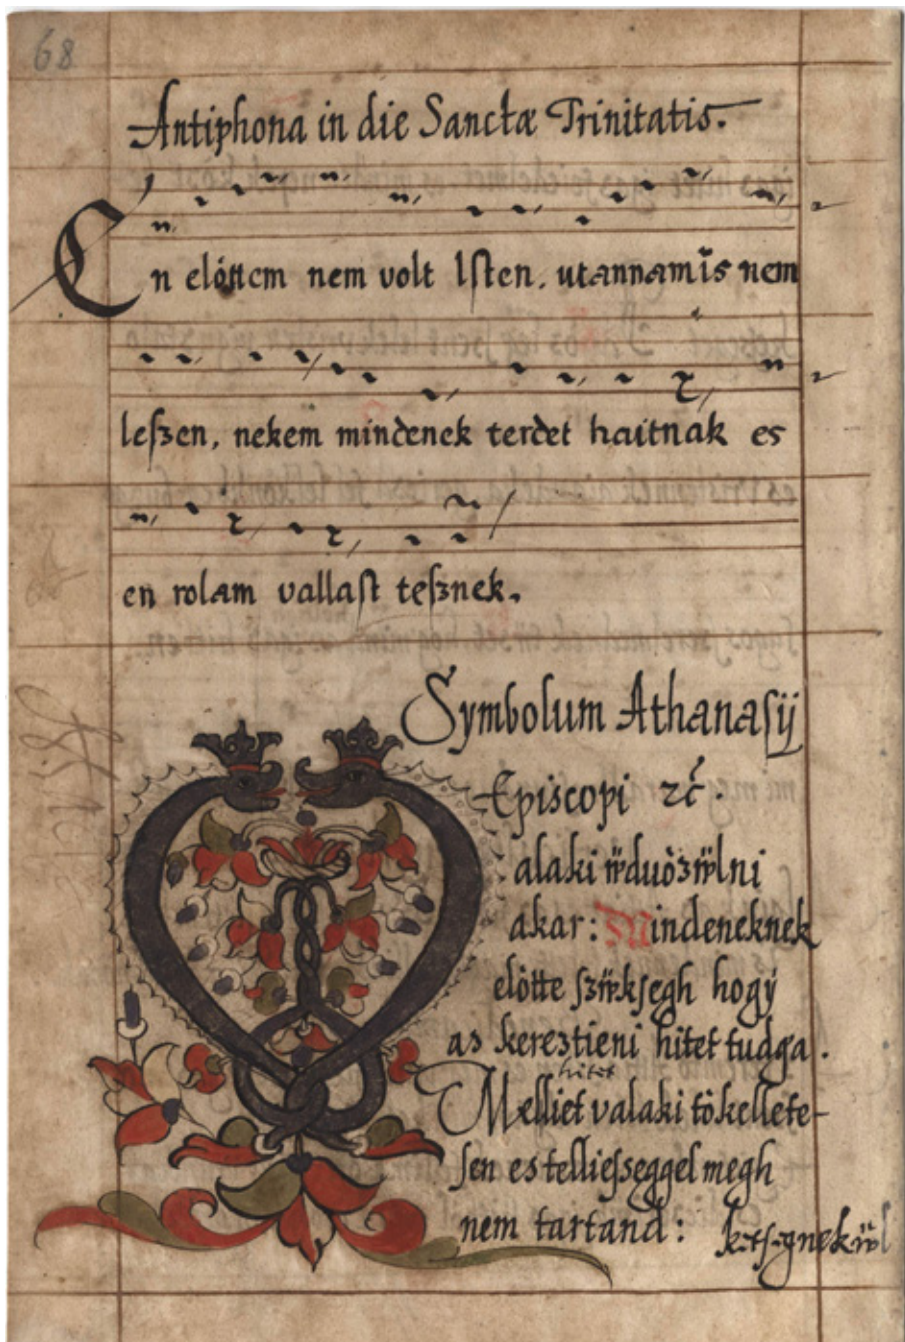 68
Antiphona in die Sanctæ Trinitatis.
En elöttem nem volt Isten, utannamis nem
leszen, nekem mindenek terdet haitnak es
en rolam vallast tesznek.
Symbolum Athanasij
Episcopi ꝛć.
alaki ẅduòzẅlni
akar: Mindeneknek
elòtte szẅksegh hogÿ
as kereztieni hitet tudga.
hitet
Melliet valaki tòkellete-
sen es telliesseggel megh
nem tartand: ketsegnekẅl